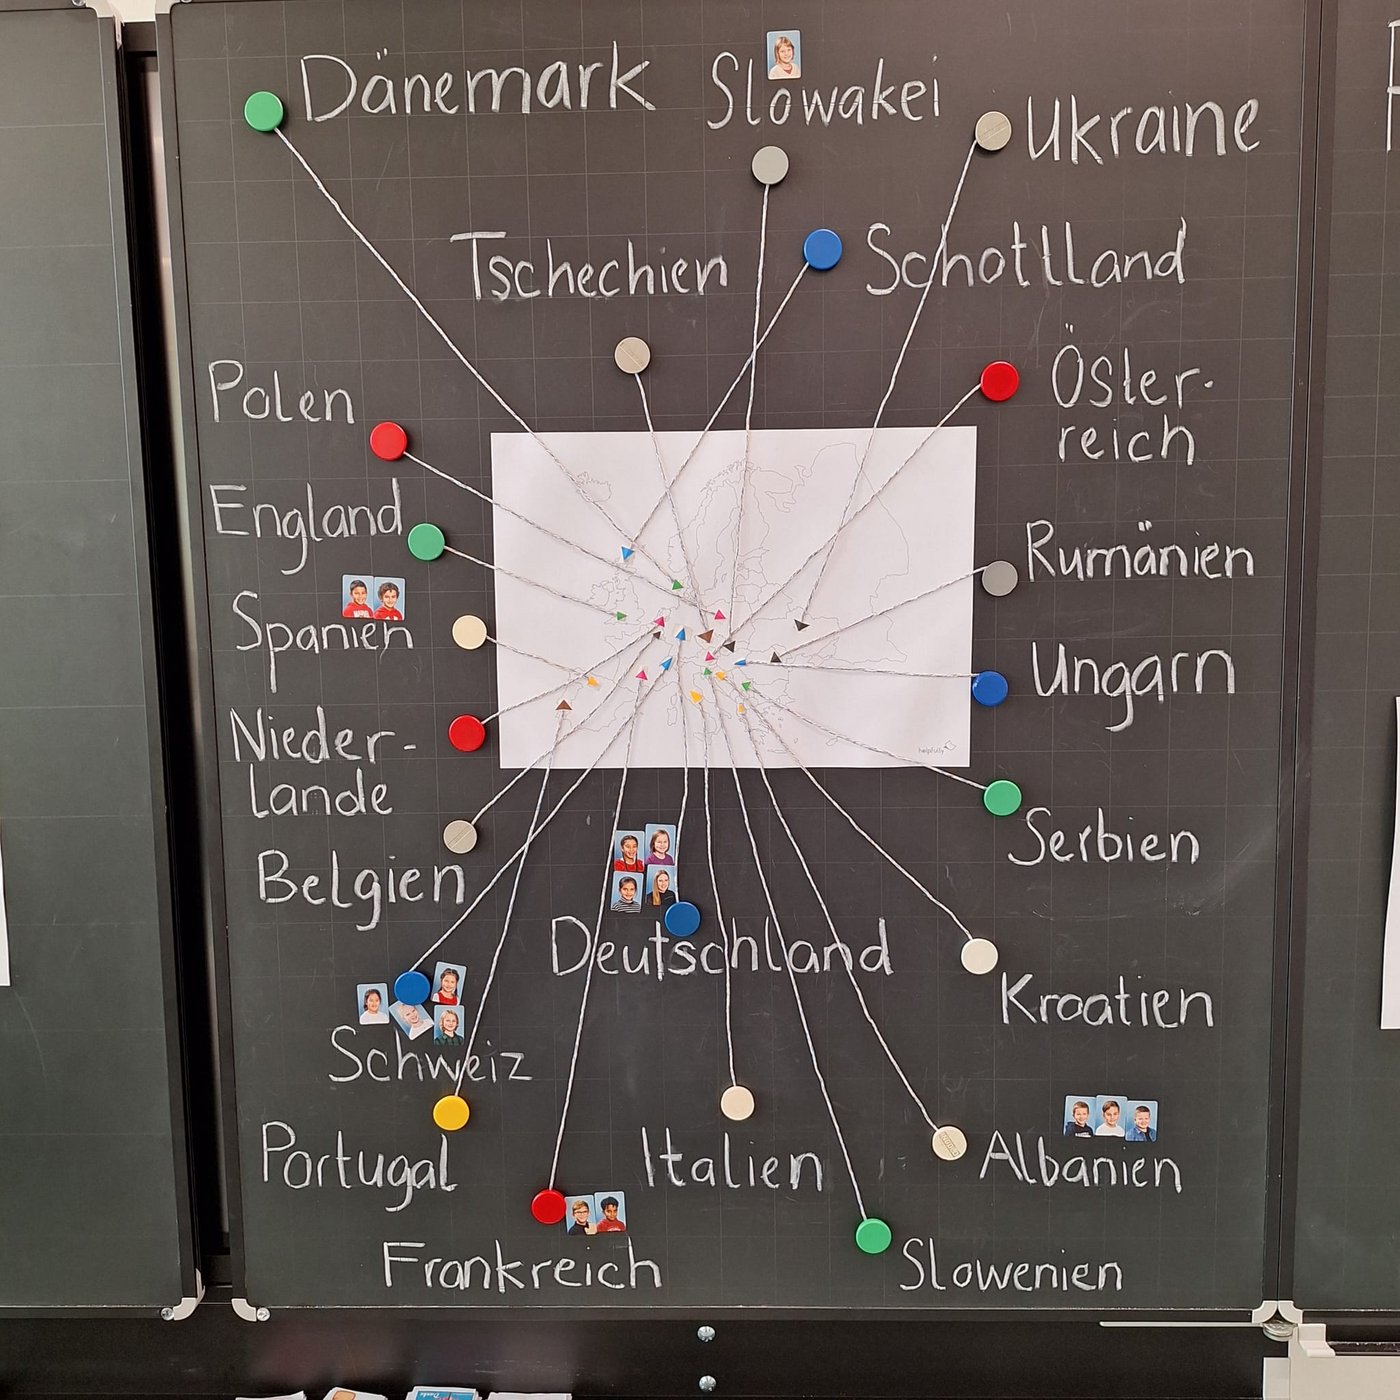 Dänemark
Slowakei
Ukraine
Tschechien
Schottland
Polen
Öster-
reich
England
Rumänien
Spanien
Ungarn
Nieder-
lande
Serbien
Belgien
Deutschland
Kroatien
Schweiz
Portugal
Italien
Albanien
Frankreich
Slowenien
helpfully